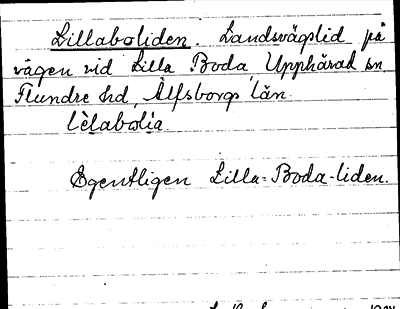 Lillaboliden. Landsvägslid på
vägen vid Lilla Boda, Upphärad sn
Flundre hd, Älfsborgs län.
lèlabolia.
Egentligen Lilla-Boda-liden.